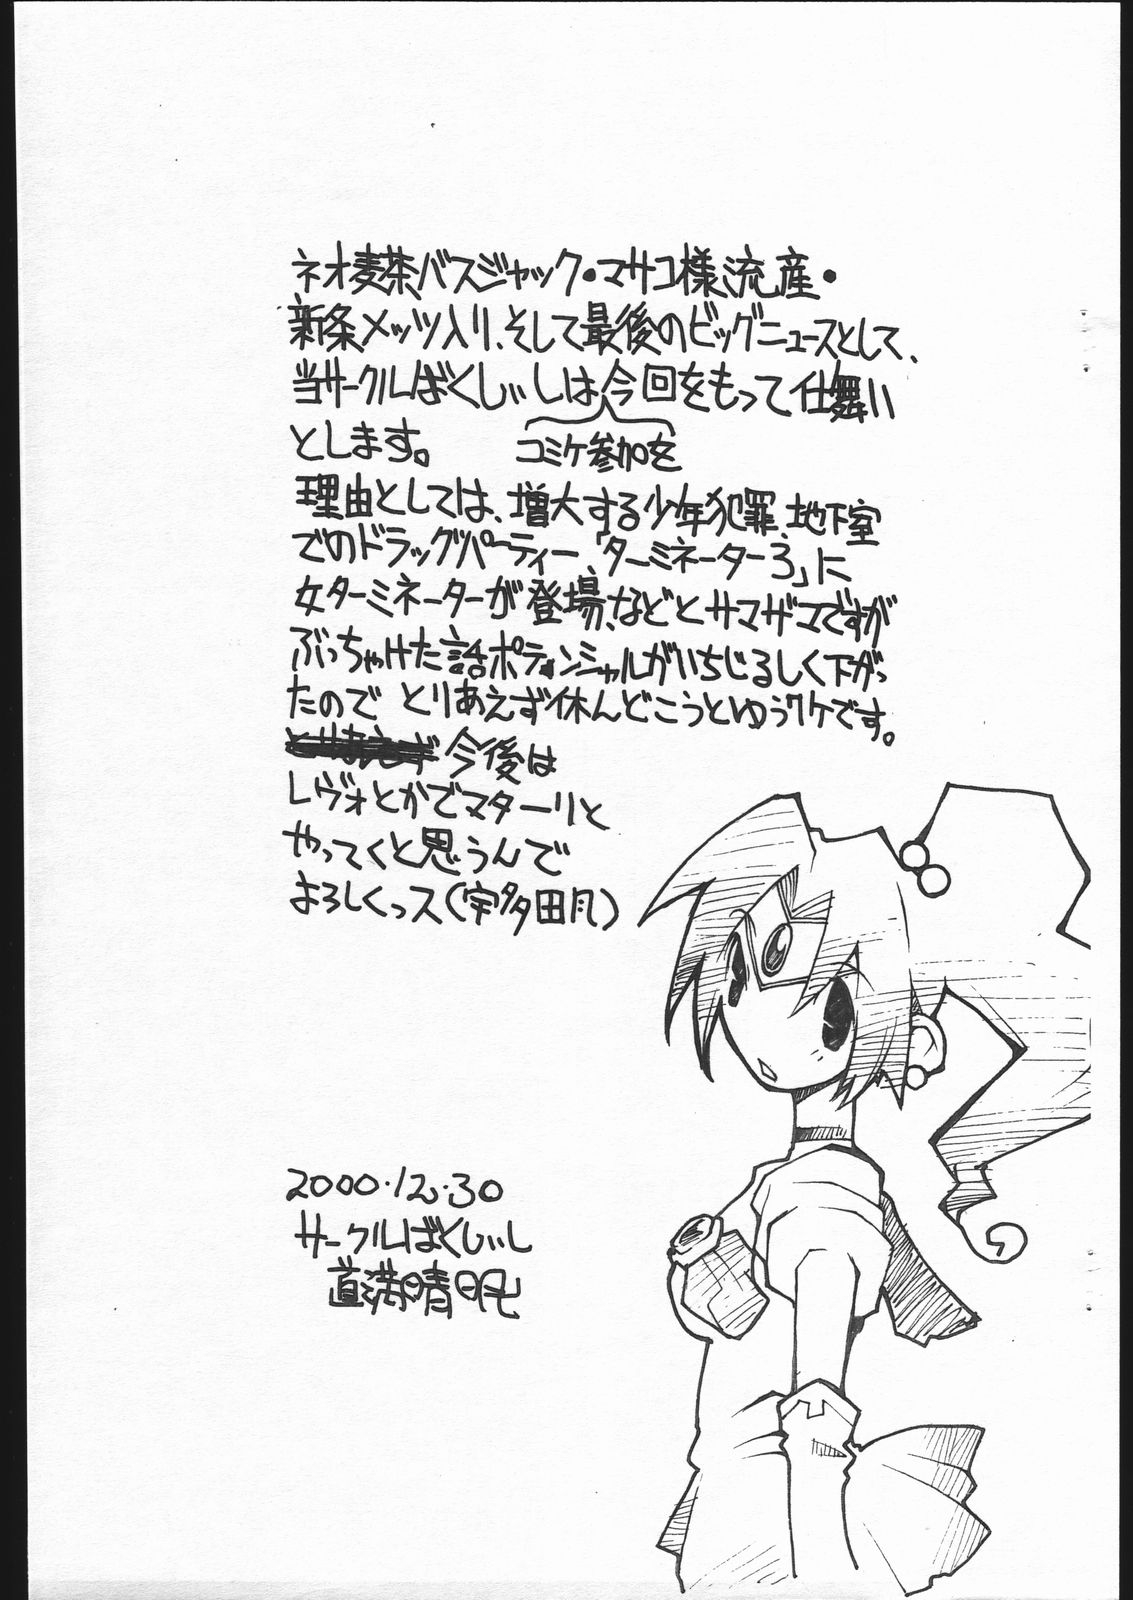 ネオ麦茶バスジャック・マサコ様流産・
新条メッツ入り、そして最後のビッグニュースとして、
当サークルばくしぃしは今回をもって仕舞い
とします。
コミケ参加を
理由としては、増大する少年犯罪、地下室
でのドラッグパーティー「ターミネーター3」に
女ターミネーターが登場、などとサマザマですが
ぶっちゃけた話ポテンシャルがいちじるしく下がっ
たので とりあえず休んどこうとゆうワケです。
今後は
レヴォとかでマターリと
やってくと思うんで
よろしくっス(宇多田風)
2000.12.30
サークルばくしぃし
道満晴明